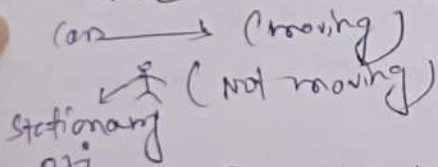 Car → (moving)
(Not moving)
Stationary